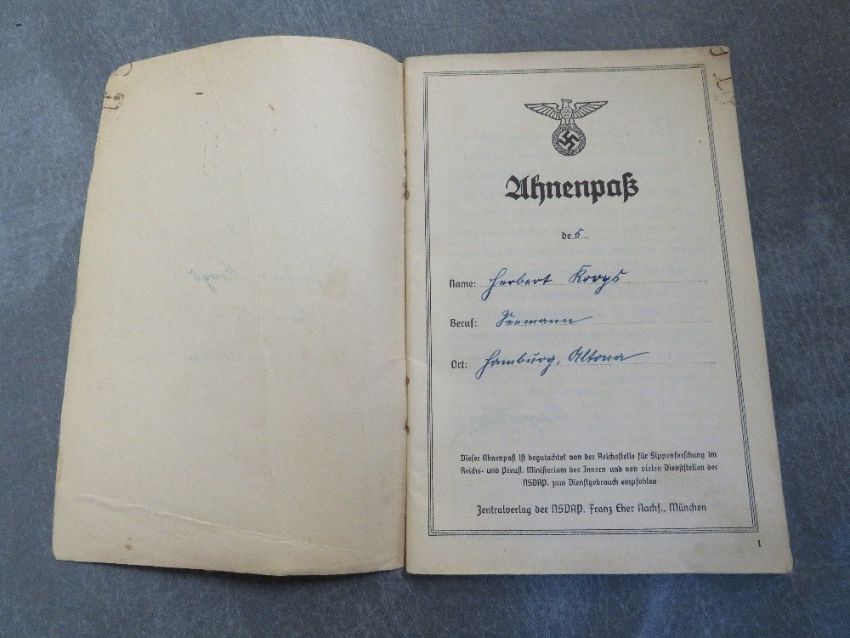 Ahnenpaß
des
Name: Herbert Koops
Beruf: Seemann
Ort: Hamburg, Altona
Dieser Ahnenpaß ist begutachtet von der Reichsstelle für Sippenforschung im
Reichs- und Preuß. Ministerium des Innern und von vielen Dienststellen der
NSDAP. zum Dienstgebrauch empfohlen
Zentralverlag der NSDAP. Franz Eher Nachf., München
1